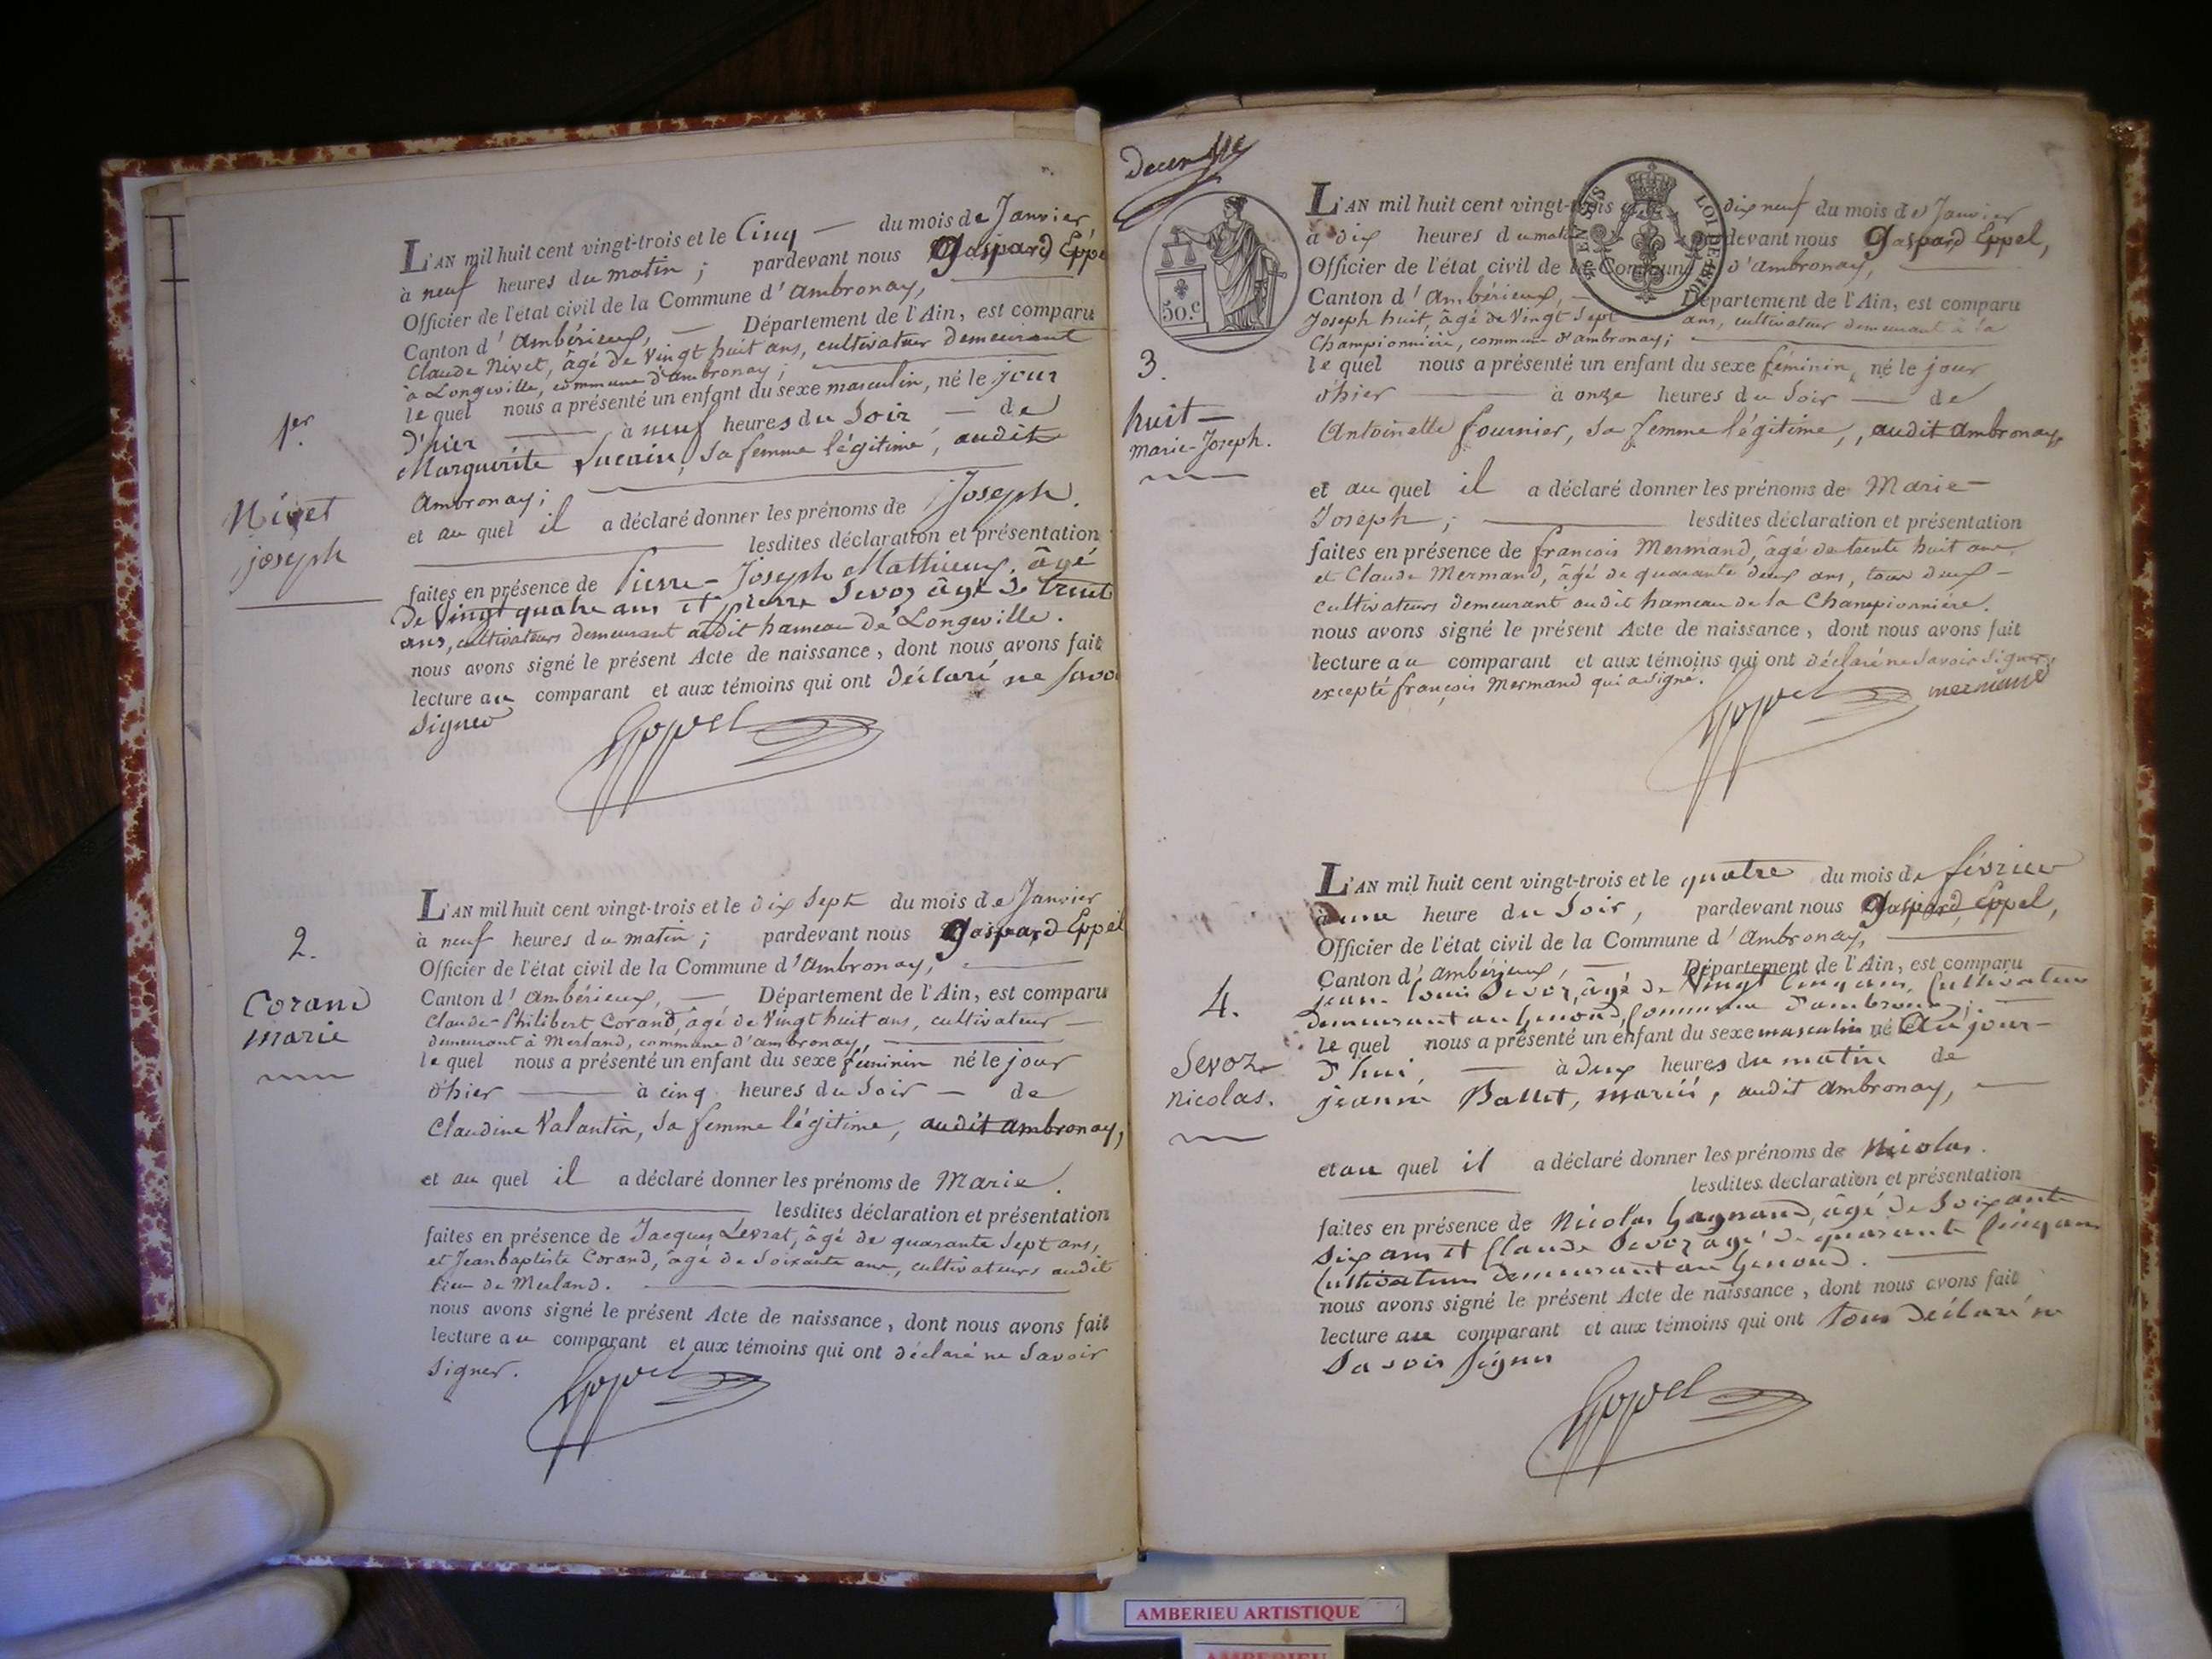 L'AN mil huit cent vingt-trois et le Cinq — du mois de Janvier
à neuf heures du matin ; pardevant nous Gaspard Eppel
Officier de l'état civil de la Commune d'ambronay,
Canton d'Ambérieux, — Département de l'Ain, est comparu
Claude Nivet, âgé de Vingt huit ans, cultivateur demeurant
à Longeville, commune d'ambronay ;
le quel nous a présenté un enfant du sexe masculin, né le jour
d'hier à neuf heures du Soir — de
Marguerite , Sa femme légitime, audit
Ambronay ;
et au quel il a déclaré donner les prénoms de Joseph.
lesdites déclaration et présentation
faites en présence de Pierre-Joseph Mathieux, âgé
de Vingt quatre ans et pierre Sevoz âgé de trente
ans, cultivateurs demeurant audit hameau de Longeville.
nous avons signé le présent Acte de naissance, dont nous avons fait
lecture au comparant et aux témoins qui ont déclaré ne Savoir
Signer
Eppel
1er.
Nivet
joseph
L'AN mil huit cent vingt-trois et le dix Sept du mois de Janvier
à neuf heures du matin ; pardevant nous Gaspard Eppel
Officier de l'état civil de la Commune d'ambronay,
Canton d'Ambérieux, — Département de l'Ain, est comparu
Claude-Philibert Corand, âgé de Vingt huit ans, cultivateur —
demeurant à Merland, commune d'ambronay,
le quel nous a présenté un enfant du sexe féminin né le jour
d'hier à cinq heures du Soir — de
Claudine Valantin, Sa femme légitime, audit Ambronay,
et au quel il a déclaré donner les prénoms de Marie.
lesdites déclaration et présentation
faites en présence de Jacques Levrat, âgé de quarante Sept ans,
et Jean baptiste Corand, âgé de Soixante ans, cultivateurs audit
lieu de Merland.
nous avons signé le présent Acte de naissance, dont nous avons fait
lecture au comparant et aux témoins qui ont déclaré ne Savoir
Signer.
Eppel
2.
Corand
marie
50.c
LOI DE 1816
L'AN mil huit cent vingt-trois et le dix neuf du mois de Janvier
à dix heures du matin pardevant nous Gaspard Eppel,
Officier de l'état civil de la Commune d'ambronay,
Canton d'Ambérieux, — Département de l'Ain, est comparu
Joseph huit, âgé de Vingt Sept ans, cultivateur demeurant à la
Championnière, commune d'ambronay ;
le quel nous a présenté un enfant du sexe féminin, né le jour
d'hier à onze heures du Soir — de
Antoinette fournier, Sa femme légitime, audit ambronay,
et au quel il a déclaré donner les prénoms de Marie-
Joseph ; lesdites déclaration et présentation
faites en présence de françois Mermand, âgé de trente huit ans,
et Claude Mermand, âgé de quarante deux ans, tous deux —
cultivateurs demeurant audit hameau de la Championnière.
nous avons signé le présent Acte de naissance, dont nous avons fait
lecture au comparant et aux témoins qui ont déclaré ne Savoir Signer,
excepté françois Mermand qui a signé.
Eppel mermand
3.
huit —
marie-Joseph.
L'AN mil huit cent vingt-trois et le quatre du mois de février
à une heure du Soir, pardevant nous Gaspard Eppel,
Officier de l'état civil de la Commune d'Ambronay,
Canton d'ambérieux, — Département de l'Ain, est comparu
jean-louis Sevoz, âgé de Vingt Cinq ans, Cultivateur
demeurant au Genoud, Commune d'ambronay ;
le quel nous a présenté un enfant du sexe masculin né Aujour-
d'hui, — à deux heures du matin de
jeanne Ballet, mariés, audit ambronay,
et au quel il a déclaré donner les prénoms de Nicolas.
lesdites déclaration et présentation
faites en présence de Nicolas Gagnand, âgé de Soixante
Six ans et Claude Sevoz âgé de quarante Cinq ans
Cultivateurs demeurant au Genoud.
nous avons signé le présent Acte de naissance, dont nous avons fait
lecture au comparant et aux témoins qui ont tous déclaré ne
Savoir Signer
Eppel
4.
Sevoz
nicolas.
AMBERIEU ARTISTIQUE
AMBERIEU